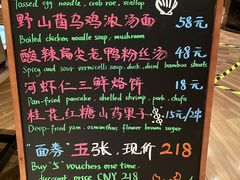 Tossed egg noodle, crab roe, scallop
野山菌乌鸡浓汤面 58元
Boiled chicken noodle soup, mushroom
酸辣扁尖老鸭粉丝汤 48元
Spicy and sour vermicelli soup, duck, dried bamboo shoots
河虾仁三鲜烙饼 18元
Pan-fried pancake, shelled shrimp, pork, chufa
桂花红糖山药果子 15元/2串
Deep-fried yam, osmanthus flower brown sugar
"面券"五张，现价218
Buy "5" vouchers one time,
discount price CNY 218